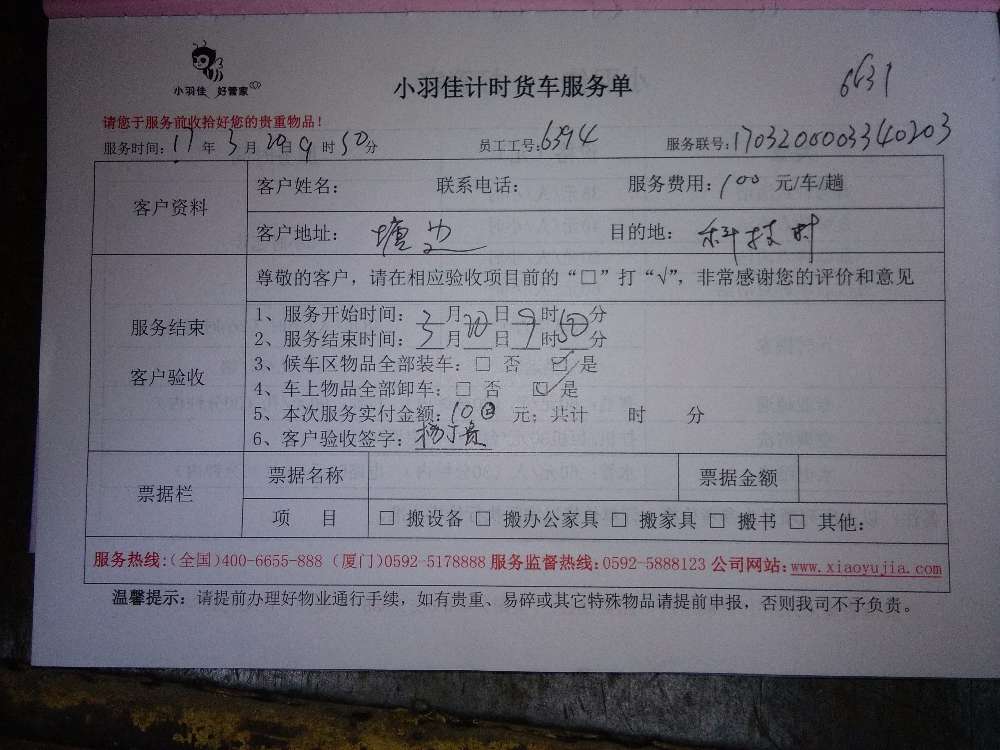 小羽佳 好管家
小羽佳计时货车服务单
6631
请您于服务前收拾好您的贵重物品!
服务时间:17年3月20日9时50分 员工工号:6394 服务联号:1703200003340203
客户资料
客户姓名: 联系电话: 服务费用:100 元/车/趟
客户地址: 塘边 目的地: 科技村
服务结束
客户验收
尊敬的客户,请在相应验收项目前的“□”打“√”,非常感谢您的评价和意见
1、服务开始时间:3月20日9时50分
2、服务结束时间:3月20日9时50分
3、候车区物品全部装车:□ 否 ☑是
4、车上物品全部卸车:□ 否 ☑是
5、本次服务实付金额:100 元;共计 时 分
6、客户验收签字:
票据栏
票据名称 票据金额
项 目 □ 搬设备 □ 搬办公家具 □ 搬家具 □ 搬书 □ 其他:
服务热线:(全国)400-6655-888 (厦门)0592-5178888 服务监督热线:0592-5888123 公司网站:www.xiaoyujia.com
温馨提示:请提前办理好物业通行手续,如有贵重、易碎或其它特殊物品请提前申报,否则我司不予负责。